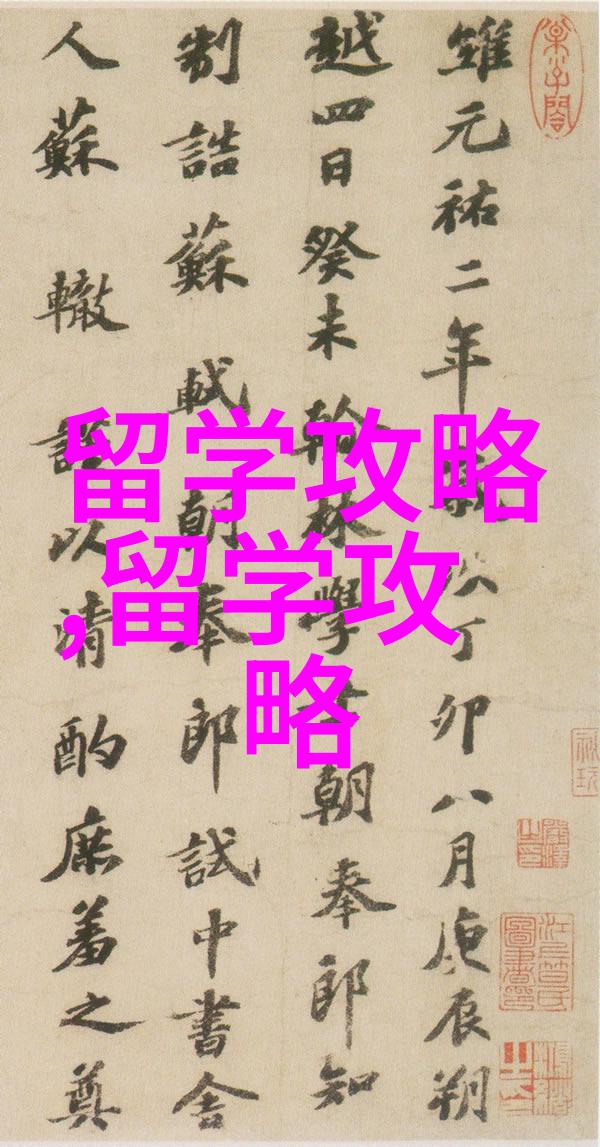 維元祐二年次丁卯八月庚辰朔
越四日癸未翰林學士朝奉郎知
制誥蘇軾朝奉郎試中書舍
人蘇轍謹以清酌庶羞之奠
留学攻略
,留学攻
略